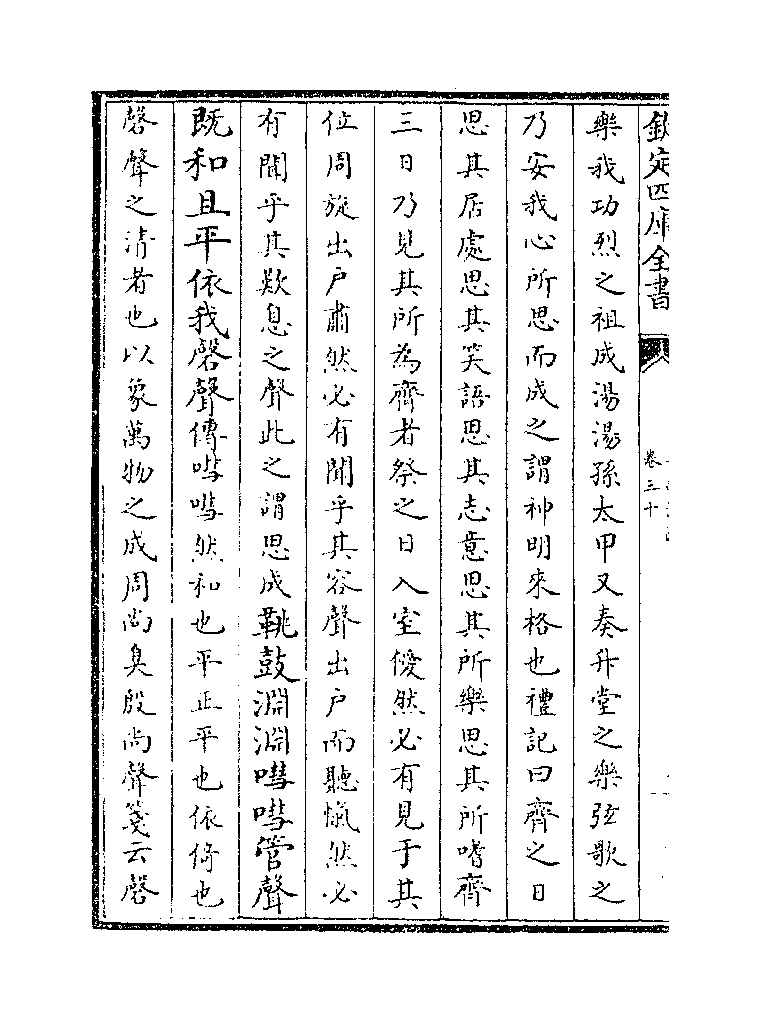 欽定四庫全書
卷三十
樂我功烈之祖成湯湯孫太甲又奏升堂之樂弦歌之
乃安我心所思而成之謂神明來格也禮記曰齊之日
思其居處思其笑語思其志意思其所樂思其所嗜齊
三日乃見其所為齊者祭之日入室僾然必有見于其
位周旋出户肅然必有聞乎其容聲出户而聽愾然必
有聞乎其歎息之聲此之謂思成鞉鼓淵淵嘒嘒管聲
既和且平依我磬聲傳嘒嘒然和也平正平也依倚也
磬聲之清者也以象萬物之成周尚臭殷尚聲箋云磬